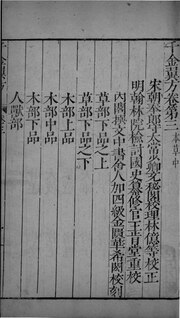 千金翼方卷第三 本草中
宋朝奉郎守太常少卿充秘閣校理林億等校正
明翰林院檢討國史纂修官王肯堂重校
內閣撰文中書舍人加四級金匱華希閎校刻
草部下品之上
草部下品之下
木部上品
木部中品
木部下品
人獸部